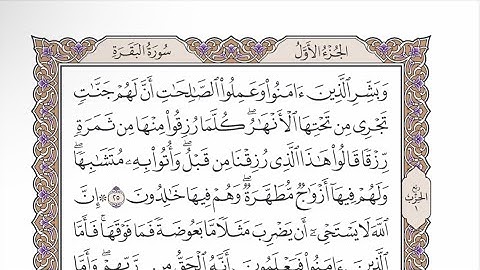 سُورَةُ البَقَرَةِ
الجُزْءُ الأَوَّلُ
وَبَشِّرِ الَّذِينَ ءَامَنُوا۟ وَعَمِلُوا۟ الصَّـٰلِحَـٰتِ أَنَّ لَهُمْ جَنَّـٰتٍ
تَجْرِى مِن تَحْتِهَا الْأَنْهَـٰرُ ۖ كُلَّمَا رُزِقُوا۟ مِنْهَا مِن ثَمَرَةٍ
رِّزْقًا قَالُوا۟ هَـٰذَا الَّذِى رُزِقْنَا مِن قَبْلُ ۖ وَأُتُوا۟ بِهِۦ مُتَشَـٰبِهًا ۖ
وَلَهُمْ فِيهَآ أَزْوَٰجٌ مُّطَهَّرَةٌ ۖ وَهُمْ فِيهَا خَـٰلِدُونَ ٢٥ ۞ إِنَّ
اللَّهَ لَا يَسْتَحْىِۦٓ أَن يَضْرِبَ مَثَلًا مَّا بَعُوضَةً فَمَا فَوْقَهَا ۚ فَأَمَّا
الَّذِينَ ءَامَنُوا۟ فَيَعْلَمُونَ أَنَّهُ الْحَقُّ مِن رَّبِّهِمْ ۖ وَأَمَّا
ربع
الحزب
١